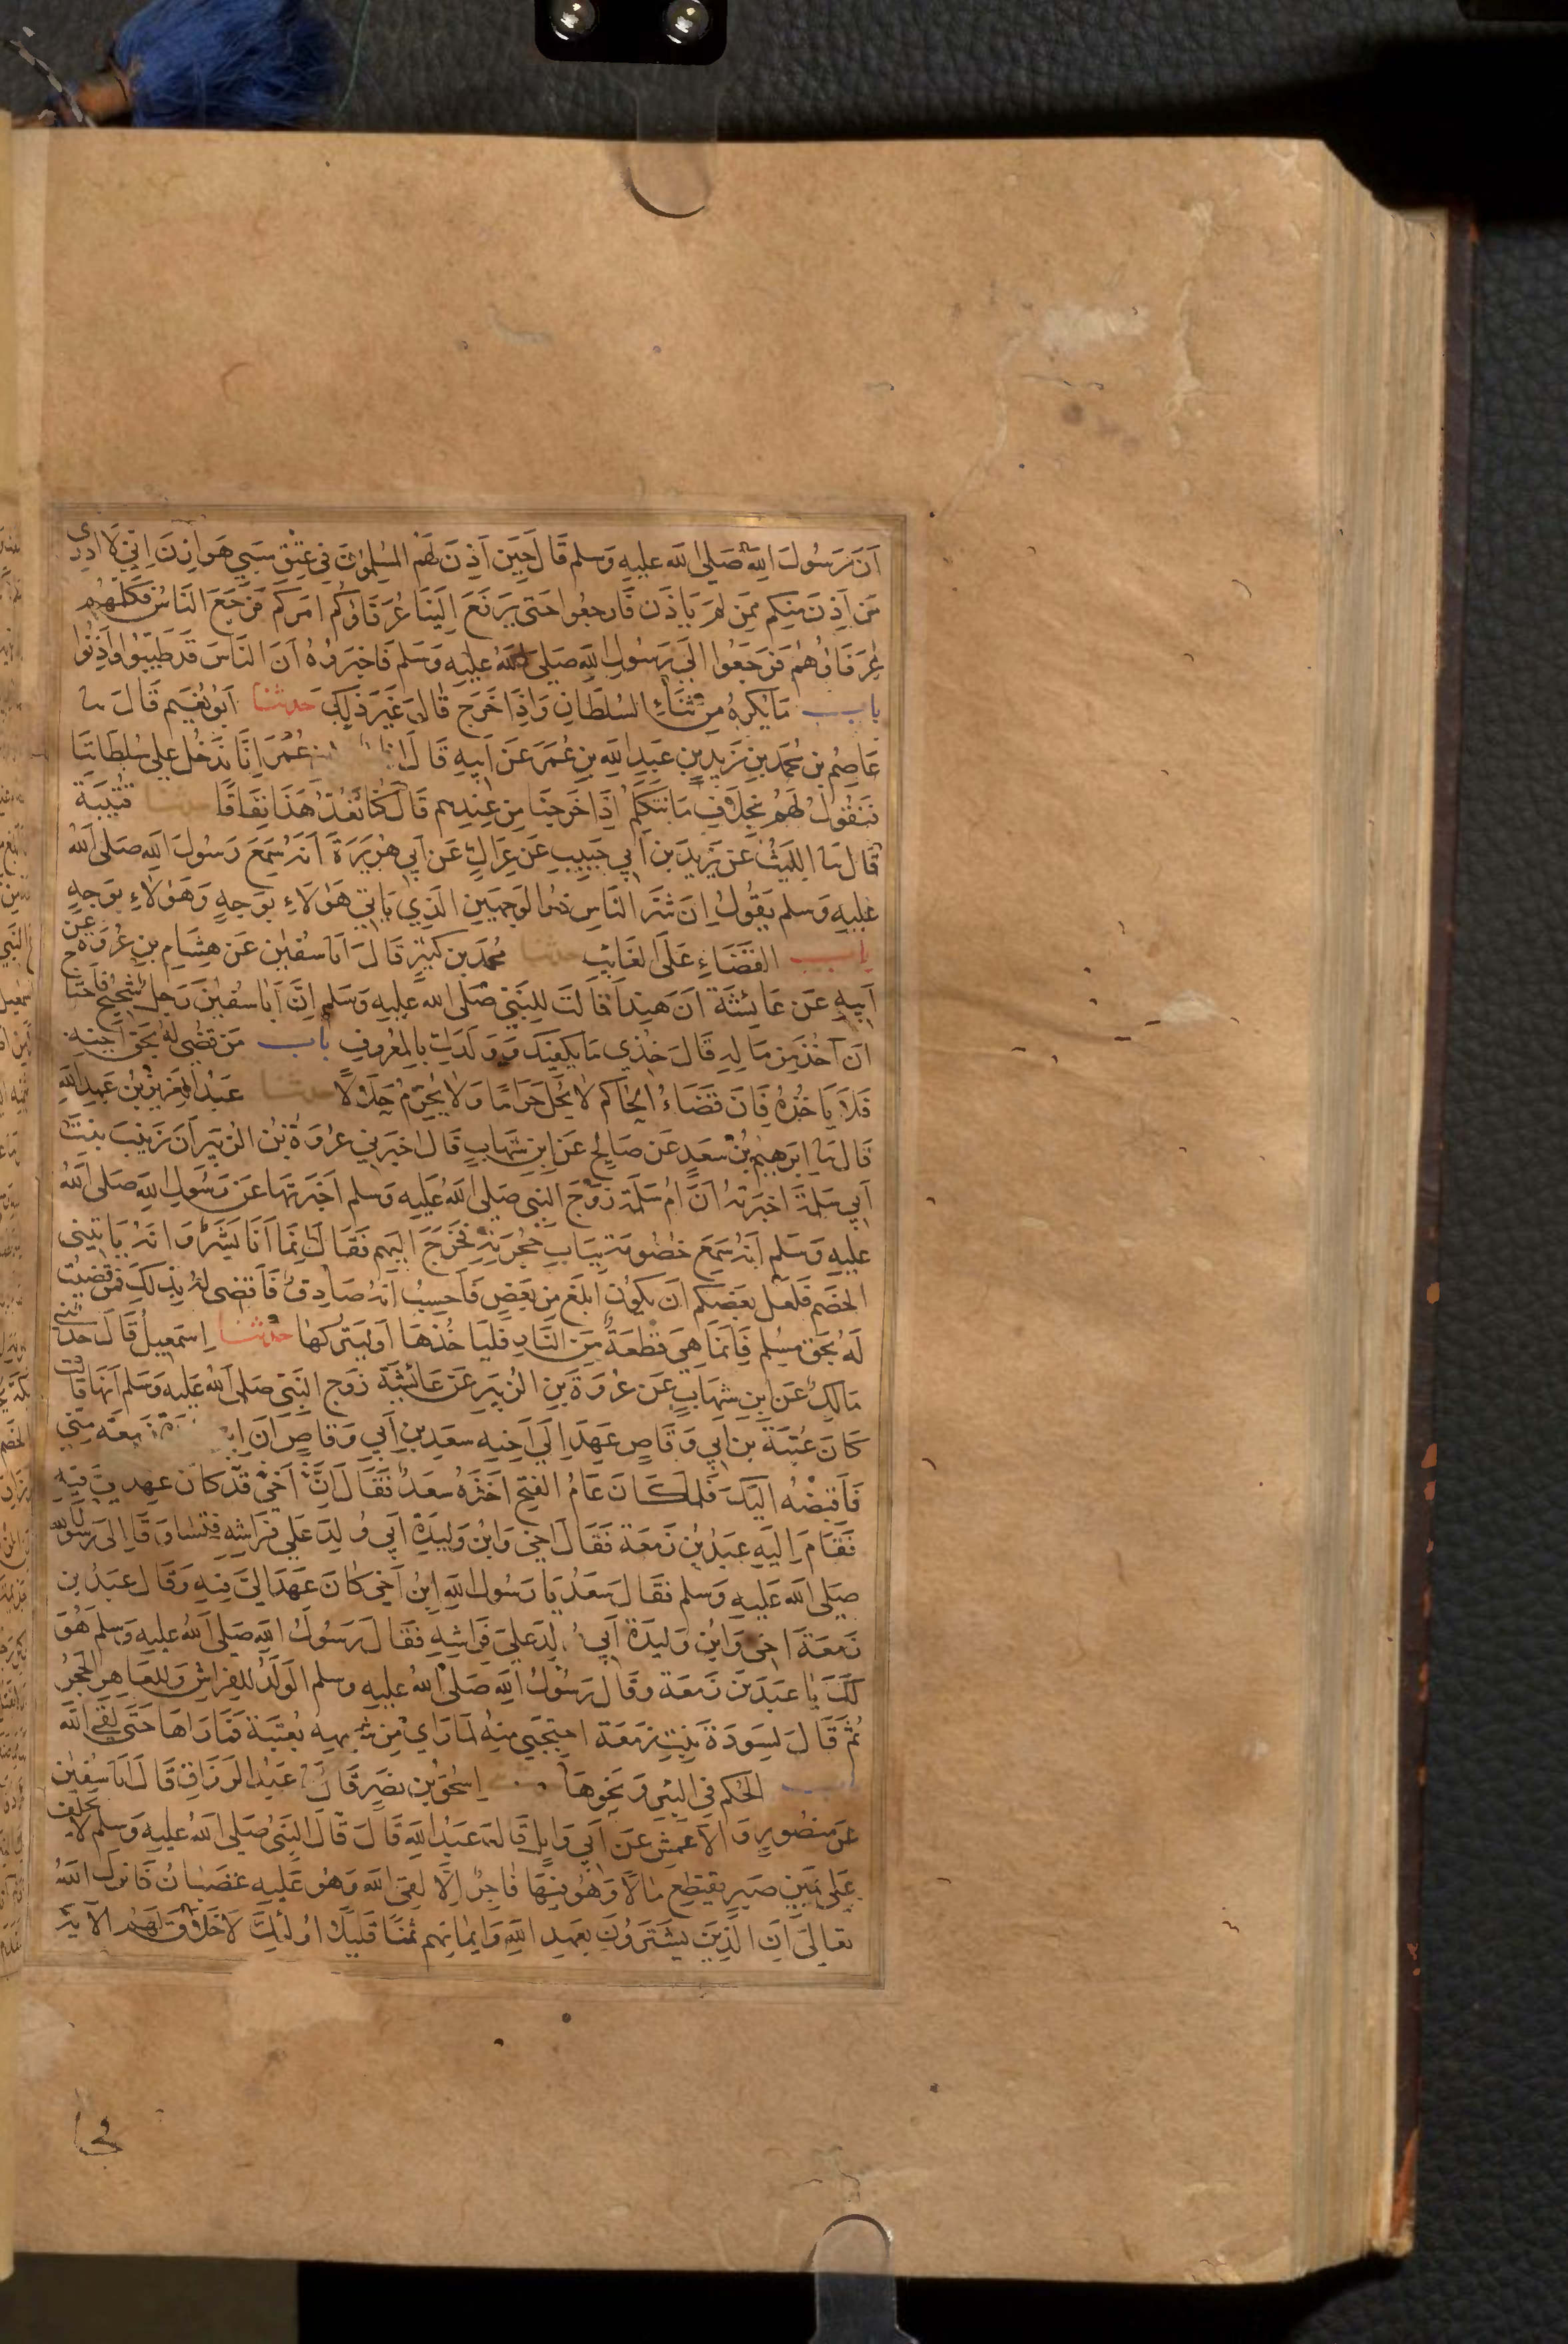 اَنَّ رَسُولَ اللّهِ صَلى الله عليهِ وَسلم قَالَ حِينَ اَذِنَ لَهُم المسْلِمُونَ فِى عِتْقِ سَبْيِ هَوَازِنَ اِنّي لَا ادرى
مَن اَذِنَ مِنكم مِمَّن لَم يَاذَن فَارجعُوا حَتى يَرفَعَ اِلَينَا عُرَفَاؤكُم امرَكم فَرَجَعَ النَّاسُ فكَلَّمَهُم
عُرَفَاؤهُم فَرَجَعُوا الى رَسُولِ اللهِ صَلى الله عَلَيهِ وَسَلم فَاخبَرُوهُ اَنَّ النَّاسَ قَد طَيَّبُوا وَاَذِنُوا
باب مَا يُكرَهُ مِن ثَنَاءِ السُلطَانِ وَاِذَا خَرَجَ قَالَ غَيرَ ذَلِكَ حدثنا ابُو نُعَيم قَالَ نا
عَاصِمُ بن مُحمَّدِ بنِ زَيدِ بنِ عَبدِ اللهِ بنِ عُمَرَ عَن اَبيهِ قَالَ اناس لابن عُمَرَ اِنَّا نَدخُل عَلى سُلطَانِنَا
فَنَقُولُ لَهُم بِخِلَافِ مَا نَتَكَلَّمُ اِذَا خَرجنَا مِن عِندِهم قَالَ كُنَّا نَعُدُّ هَذَا نِفَاقًا حدثنا قُتَيبَة
قَالَ نا اللَيثُ عَن يَزِيدَ بن اَبي حَبيبٍ عَن عِرَاكٍ عَن اَبي هُرَيرَةَ اَنَّه سَمِعَ رَسُولَ اللهِ صَلى الله
عليهِ وَسلم يَقُولُ اِنَّ شَرَّ النَّاسِ ذو الوَجهَينِ الَّذِي يَاتي هَؤلَاءِ بِوَجهٍ وَهَؤلَاءِ بوَجهٍ
باب القَضَاءِ عَلَى الغَائِبِ حدثنا مُحَمَّد بن كَثيرٍ قَالَ اَنا سُفيٰن عَن هِشَامِ بنِ عُروَةَ عن
اَبيهِ عَن عَائِشَة اَنَّ هِندًا قَالَت لِلنَّبيِّ صَلى الله عليه وَسَلم اِنَّ اَبَا سُفيٰنَ رَجل شَحِيحٌ فاَحتاج
ان آخُذَ مِن مَالِهِ قَالَ خُذِي مَا يَكفِيكِ وَوَلَدَكِ بِالمَعرُوفِ باب مَن قُضِى لَهُ بِحَقّ اَخيهِ
فَلَا يَاخُذهُ فَاِنَّ قَضَاءَ الحَاكم لا يُحِلُّ حَرَامًا وَلا يُحَرِّمُ حَلَالًا حدثنا عَبدُ العَزِيز بن عَبدِ اللهِ
قَالَ نا ابرهيمُ بنُ سَعدٍ عَن صَالِحٍ عَن ابنِ شِهَابٍ قَالَ اخبَرني عُروَةُ بنُ الزُبَير اَنَّ زَينَبَ بِنتَ
اَبي سَلمَةَ اخبرَته اَنَّ امَّ سَلَمَةَ زَوجَ النبى صَلى الله عَليهِ وَسلم اَخبَرَتها عَن رَسُولِ اللهِ صَلى الله
عليه وَسَلم اَنّه سَمِعَ خصُومَة بِبَابِ حُجرَتِهِ فَخَرَجَ اِلَيهم فَقَالَ اِنَّما اَنَا بَشَر وَانه يَاتيني
الخصم فَلَعَلَّ بَعضكم ان يَكُونَ ابلغَ مِن بَعضٍ فَاَحسِبُ انه صَادِق فَاَقضى لَه بذلكَ فَمَن قضَيت
لَهُ بِحَق مسلمٍ فَاِنَّمَا هِيَ قِطعَة مِنَ النَّارِ فَليَاخُذهَا اَو لِيَترُكهَا حدثنا اِسمَعِيلُ قَالَ حدثني
مَالِكٌ عَن ابنِ شِهَابٍ عَن عُروَةَ بنِ الزُبَير عَن عَائِشَة زَوج النَبيّ صَلى الله عَليهِ وَسَلم اَنَّهَا قالت
كَانَ عُتبَةُ بن اَبي وَقَّاصٍ عَهِدَ اِلَى اَخِيهِ سَعدِ بن اَبي وَقاصٍ اَنَّ ابن زَمعَة مِنّي
فَاَقبِضهُ اليكَ فَلما كَانَ عَامُ الفتحِ اخَذَهُ سَعدٌ فَقَالَ ابن اَخي قَد كَانَ عَهِدَ اِليَّ فيهِ
فَقَامَ اِلَيهِ عَبدُ بنُ زَمعَة فَقَالَ اخي وَابنُ وَليدَةِ اَبي وُلِدَ عَلى فِرَاشِهِ فتساوقا الى رسول الله
صَلى الله عَليهِ وَسلم فَقَالَ سَعدٌ يَا رَسُولَ اللهِ ابنُ اَخي كَانَ عَهِدَ اليَّ فيهِ وَقَالَ عَبدُ بن
زَمعَةَ اخى وَابنُ وَليدَةِ اَبي وُلِدَ عَلى فِرَاشِهِ فَقَالَ رَسُولُ اللهِ صَلى الله عليهِ وَسلم هُوَ
لَكَ يَا عَبدَ بنَ زَمعَة وَقَالَ رَسُولُ اللهِ صَلى الله عليه وسلم الوَلَدُ لِلفِرَاشِ وَلِلعَاهر الحَجَرُ
ثُمَّ قَالَ لِسَودَةَ بنتِ زَمعَة احتَجِبي مِنهُ لمَا رَايَ مِن شبهه بعُتبَة فَمَا رَاهَا حَتى لَقِىَ اللهَ
باب الحُكم في البئر وَنَحوِهَا حدثنا اِسحٰقُ بن نَصرٍ قَالَ نا عَبدُ الرزَّاقِ قَالَ اَنا سُفيٰن
عَن منصُورٍ وَالاَعمَشِ عَن اَبي وَايلٍ قَالَ عَبدُ اللهِ قَالَ قَالَ النَبي صَلى الله عَليهِ وَسلم لا يحلف
عَلى يَمينِ صَبرٍ يَقتَطِع مَالًا وَهُوَ فيهَا فَاجِرٌ اِلَّا لَقِيَ اللهَ وَهُو عَلَيهِ غَضبَانُ فَانزلَ اللهُ
تعالى اَن الَّذِينَ يَشتَرُونَ بعَهدِ اللهِ وَاَيمانِهم ثمنًا قَليلًا اولَئِكَ لَا خَلَاقَ لَهُم الاية